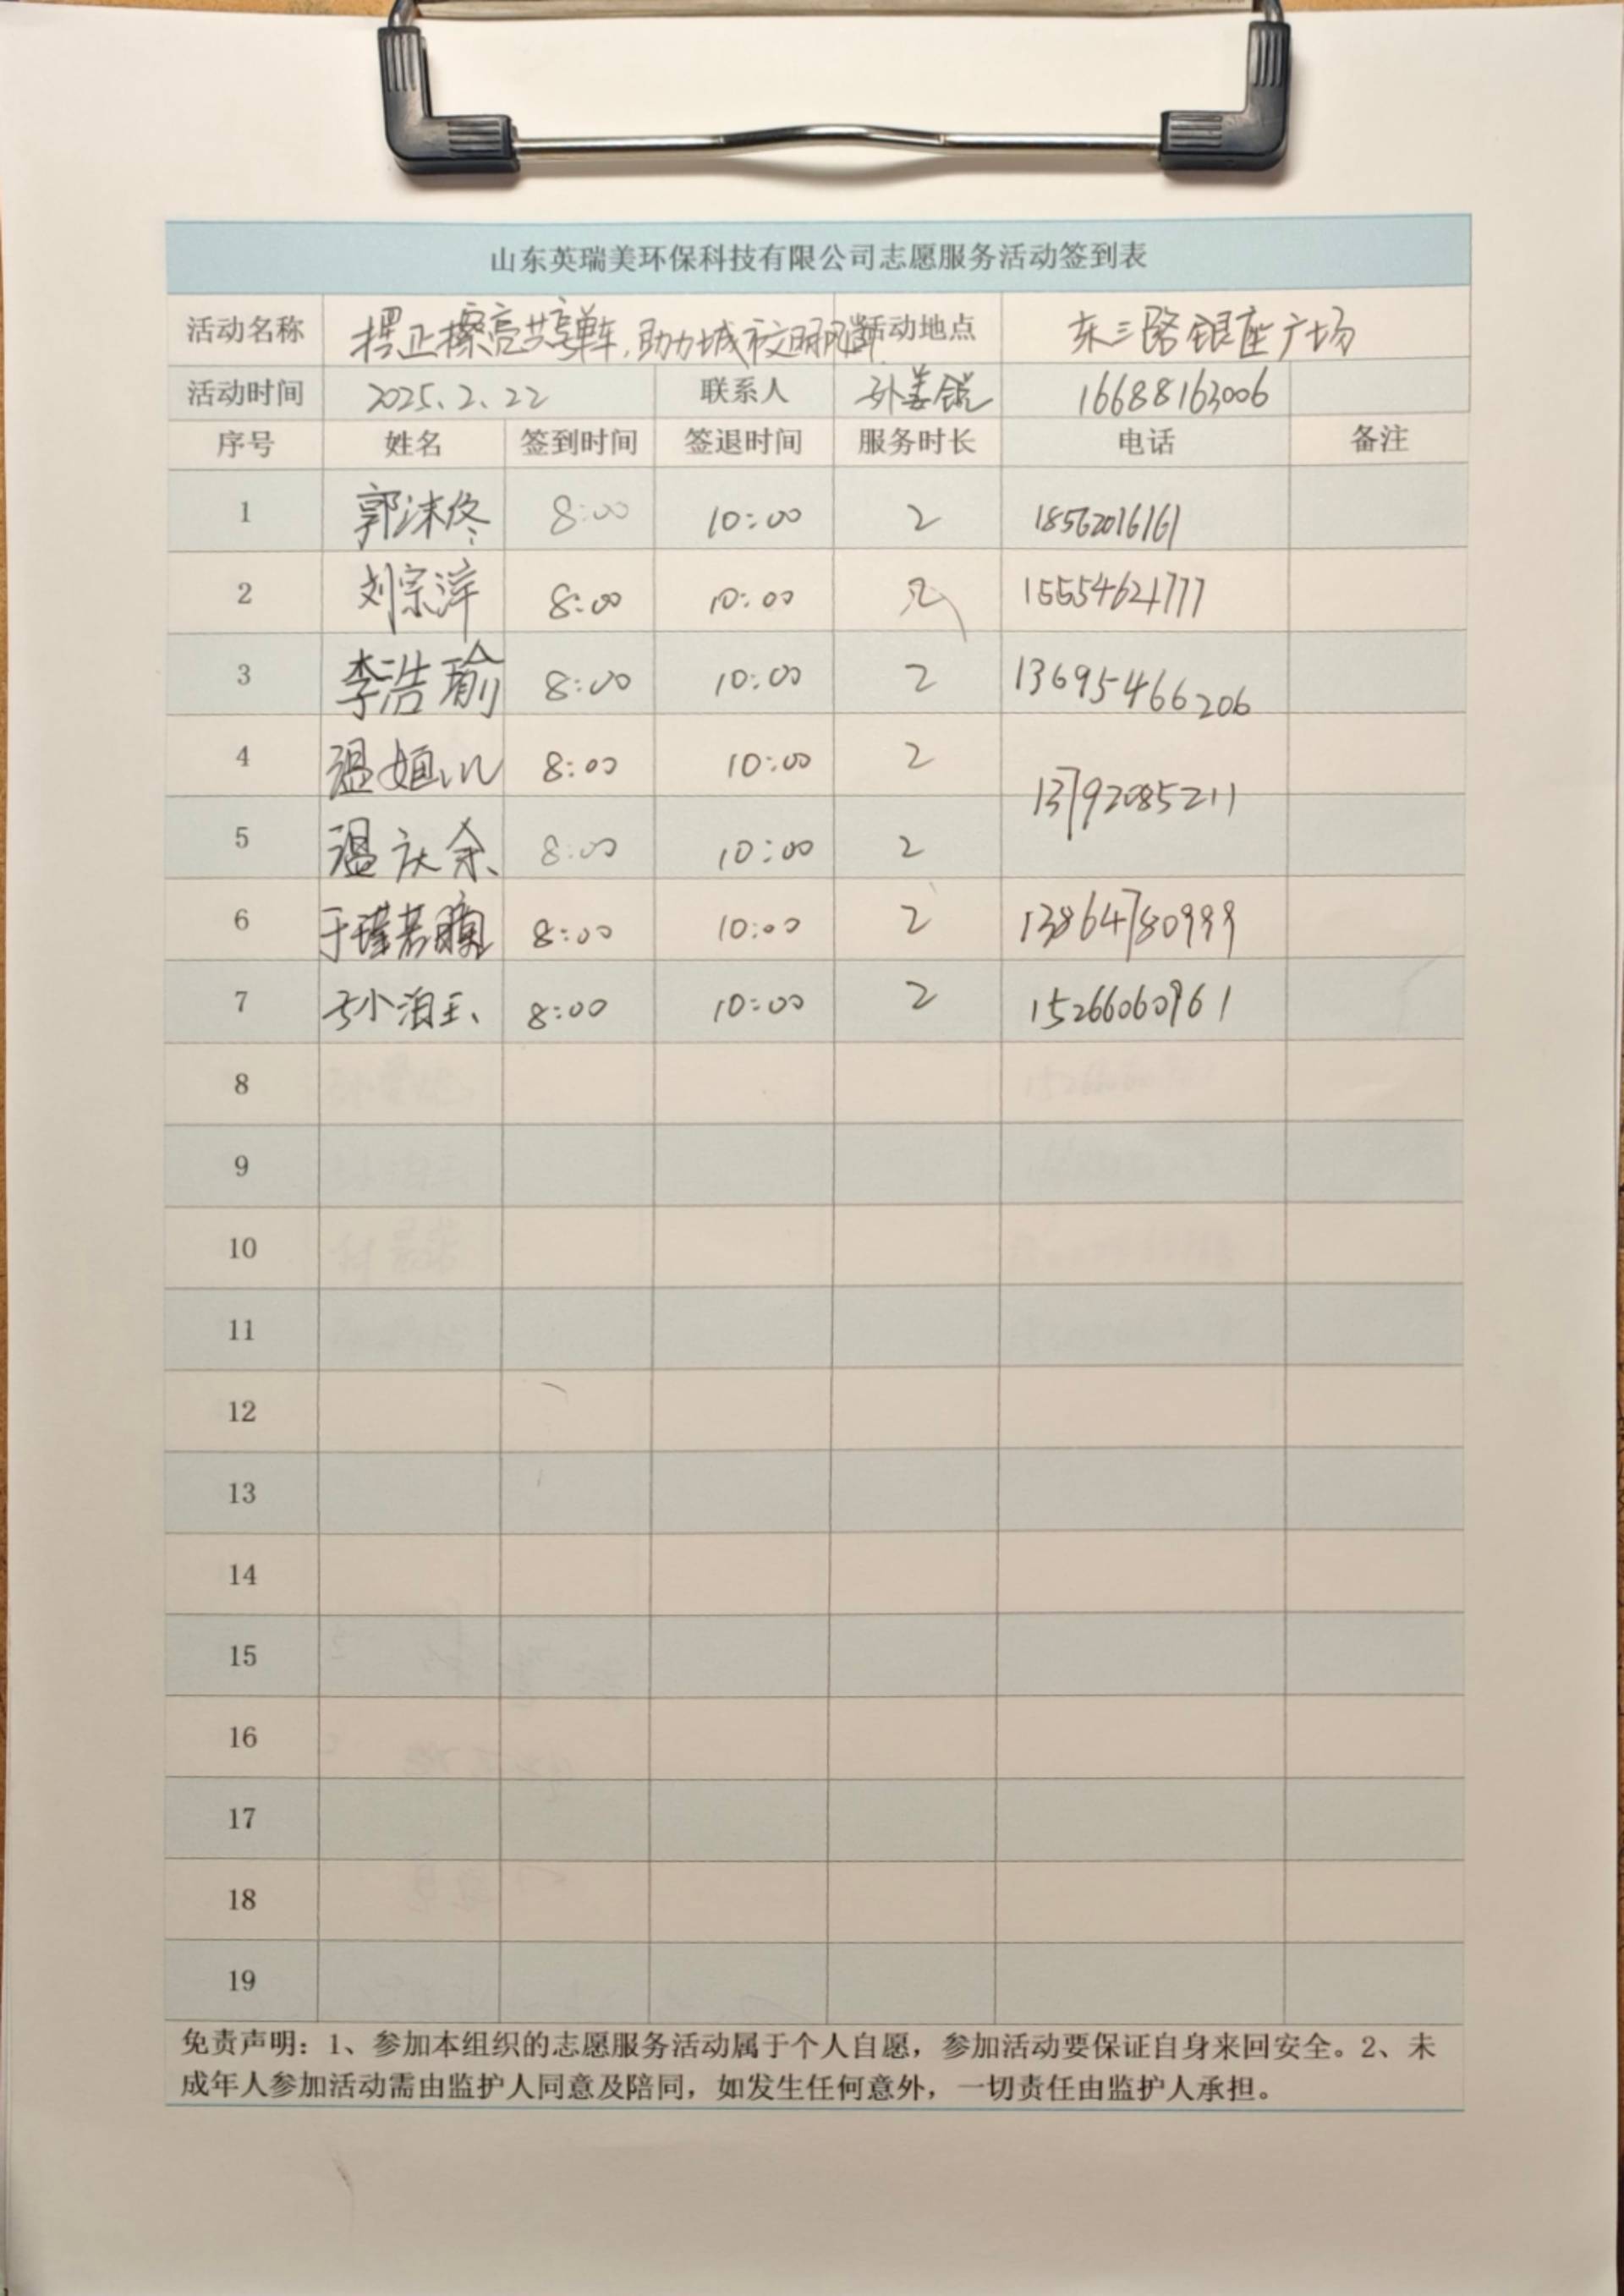 山东英瑞美环保科技有限公司志愿服务活动签到表
活动名称 摆正擦亮共享单车,助力城市文明 活动地点 东三路银座广场
活动时间 2025.2.22 联系人 孙姜锐 16688163006
序号 姓名 签到时间 签退时间 服务时长 电话 备注
1 郭沫佟 8:00 10:00 2 18562016161
2 刘宗泽 8:00 10:00 2 15554621777
3 李浩瑜 8:00 10:00 2 13695466206
4 温 8:00 10:00 2 13792085211
5 温庆余 8:00 10:00 2
6 于瑾 8:00 10:00 2 13864780999
7 8:00 10:00 2 15266060961
8
9
10
11
12
13
14
15
16
17
18
19
免责声明:1、参加本组织的志愿服务活动属于个人自愿,参加活动要保证自身来回安全。2、未
成年人参加活动需由监护人同意及陪同,如发生任何意外,一切责任由监护人承担。